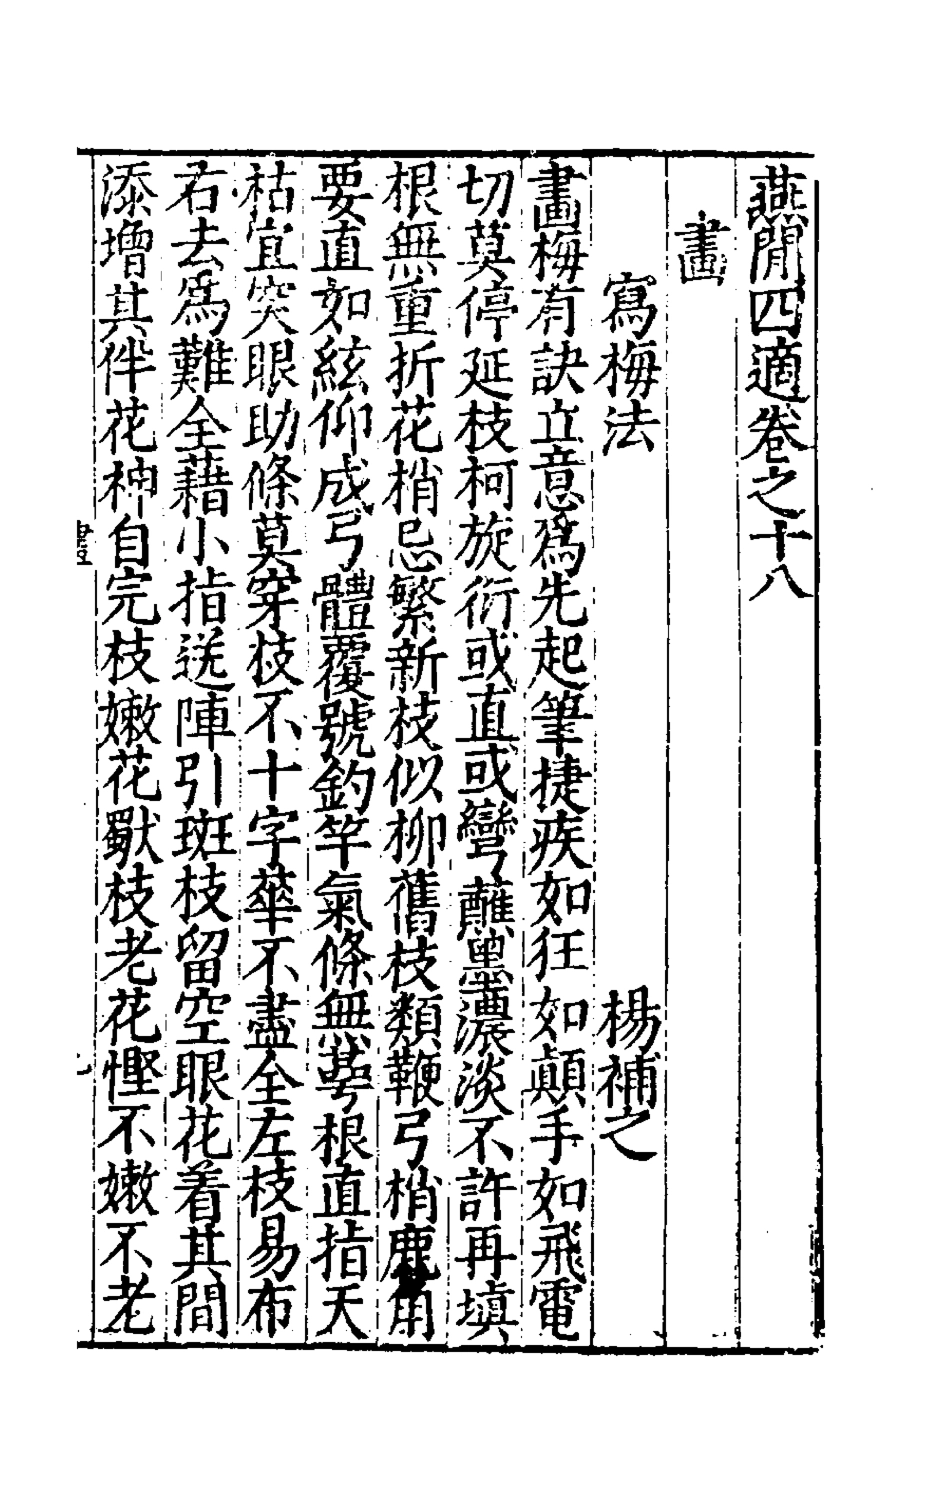 燕閒四適卷之十八
畫
寫梅法　楊補之
畫梅有訣立意爲先起筆捷疾如狂如顛手如飛電
切莫停延枝柯旋衍或直或彎蘸墨濃淡不許再塡
根無重折花梢忌繁新枝似柳舊枝類鞭弓梢鹿角
要直如絃仰成弓體覆號釣竿氣條無萼根直指天
枯宜突眼助條莫穿枝不十字華不盡全左枝易布
右去爲難全藉小指送陣引斑枝留空眼花着其間
添增其伴花神自完枝嫩花獃枝老花慳不嫩不老